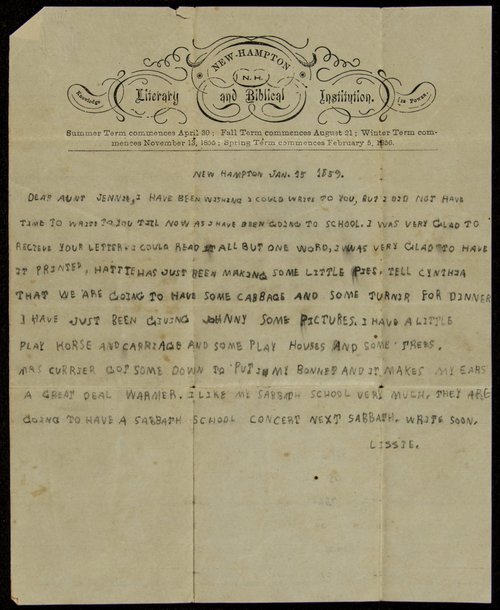 NEW-HAMPTON
N.H.
Knowledge Literary and Biblical Institution. is Power.
Summer Term commences April 30; Fall Term commences August 21; Winter Term com-
mences November 13, 1855; Spring Term commences February 5, 1856.
NEW HAMPTON JAN. 15 1859.
DEAR AUNT JENNIE, I HAVE BEEN WISHING I COULD WRITE TO YOU, BUT I DID NOT HAVE
TIME TO WRITE TO YOU TILL NOW AS I HAVE BEEN GOING TO SCHOOL. I WAS VERY GLAD TO
RECIEVE YOUR LETTER. I COULD READ IT ALL BUT ONE WORD, I WAS VERY GLAD TO HAVE
IT PRINTED, HATTIE HAS JUST BEEN MAKING SOME LITTLE PIES. TELL CYNTHIA
THAT WE ARE GOING TO HAVE SOME CABBAGE AND SOME TURNIP FOR DINNER
I HAVE JUST BEEN GIVING JOHNNY SOME PICTURES. I HAVE A LITTLE
PLAY HORSE AND CARRIAGE AND SOME PLAY HOUSES AND SOME TREES.
MRS CURRIER GOT SOME DOWN TO PUT IN MY BONNET AND IT MAKES MY EARS
A GREAT DEAL WARMER. I LIKE MY SABBATH SCHOOL VERY MUCH. THEY ARE
GOING TO HAVE A SABBATH SCHOOL CONCERT NEXT SABBATH. WRITE SOON.
LISSIE.